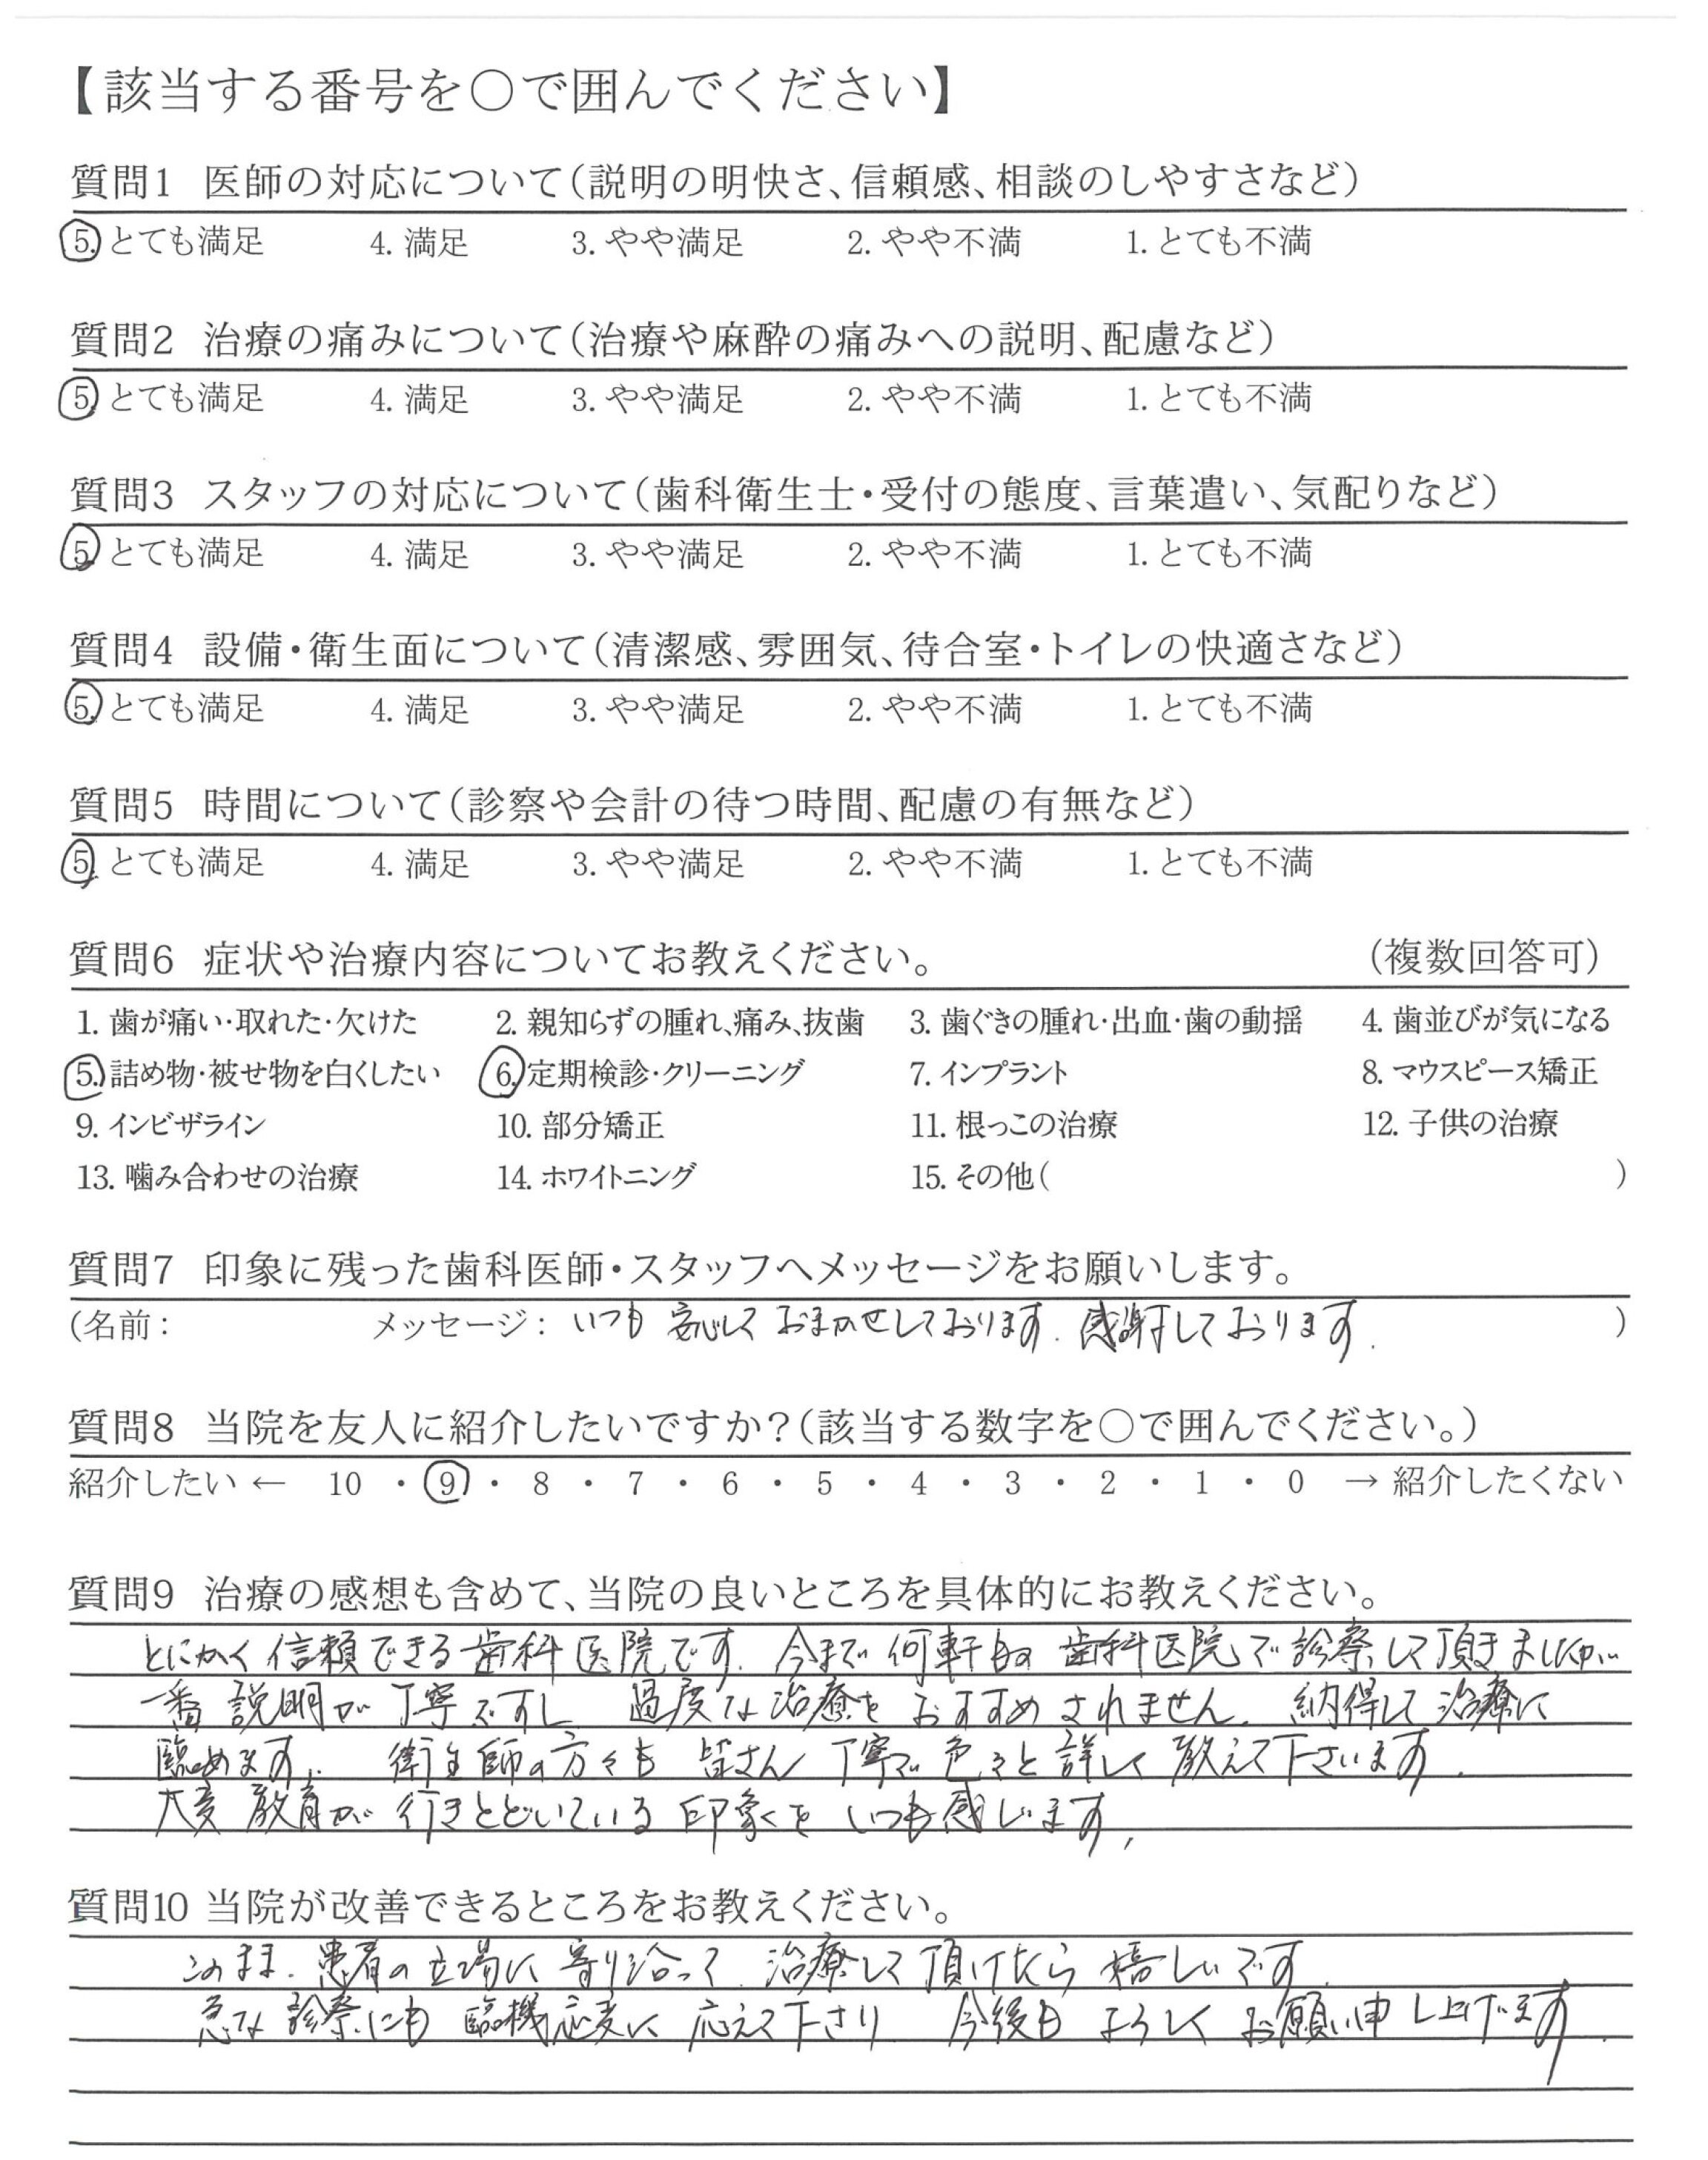 【該当する番号を○で囲んでください】
質問1 医師の対応について(説明の明快さ、信頼感、相談のしやすさなど)
5. とても満足 4. 満足 3. やや満足 2. やや不満 1. とても不満
質問2 治療の痛みについて(治療や麻酔の痛みへの説明、配慮など)
5. とても満足 4. 満足 3. やや満足 2. やや不満 1. とても不満
質問3 スタッフの対応について(歯科衛生士・受付の態度、言葉遣い、気配りなど)
5. とても満足 4. 満足 3. やや満足 2. やや不満 1. とても不満
質問4 設備・衛生面について(清潔感、雰囲気、待合室・トイレの快適さなど)
5. とても満足 4. 満足 3. やや満足 2. やや不満 1. とても不満
質問5 時間について(診察や会計の待つ時間、配慮の有無など)
5. とても満足 4. 満足 3. やや満足 2. やや不満 1. とても不満
質問6 症状や治療内容についてお教えください。 (複数回答可)
1. 歯が痛い・取れた・欠けた 2. 親知らずの腫れ、痛み、抜歯 3. 歯ぐきの腫れ・出血・歯の動揺 4. 歯並びが気になる
5. 詰め物・被せ物を白くしたい 6. 定期検診・クリーニング 7. インプラント 8. マウスピース矯正
9. インビザライン 10. 部分矯正 11. 根っこの治療 12. 子供の治療
13. 噛み合わせの治療 14. ホワイトニング 15. その他( )
質問7 印象に残った歯科医師・スタッフへメッセージをお願いします。
(名前: メッセージ: いつも 安心して おまかせしております. 感謝しております. )
質問8 当院を友人に紹介したいですか?(該当する数字を○で囲んでください。)
紹介したい ← 10 ・ 9 ・ 8 ・ 7 ・ 6 ・ 5 ・ 4 ・ 3 ・ 2 ・ 1 ・ 0 → 紹介したくない
質問9 治療の感想も含めて、当院の良いところを具体的にお教えください。
とにかく 信頼できる 歯科医院です. 今まで 何軒もの 歯科医院で 診察して頂きましたが
一番 説明が 丁寧ですし 過度な治療を おすすめされません. 納得して 治療に
臨めます. 衛生師の方々も 皆さん 丁寧で 色々と詳しく 教えて下さいます.
大変 教育が 行きとどいている 印象を いつも感じます.
質問10 当院が改善できるところをお教えください。
このまま. 患者の立場に 寄り沿って. 治療して 頂けたら 嬉しいです.
急な 診察にも 臨機応変に 応えて下さり 今後も よろしく お願い申し上げます.